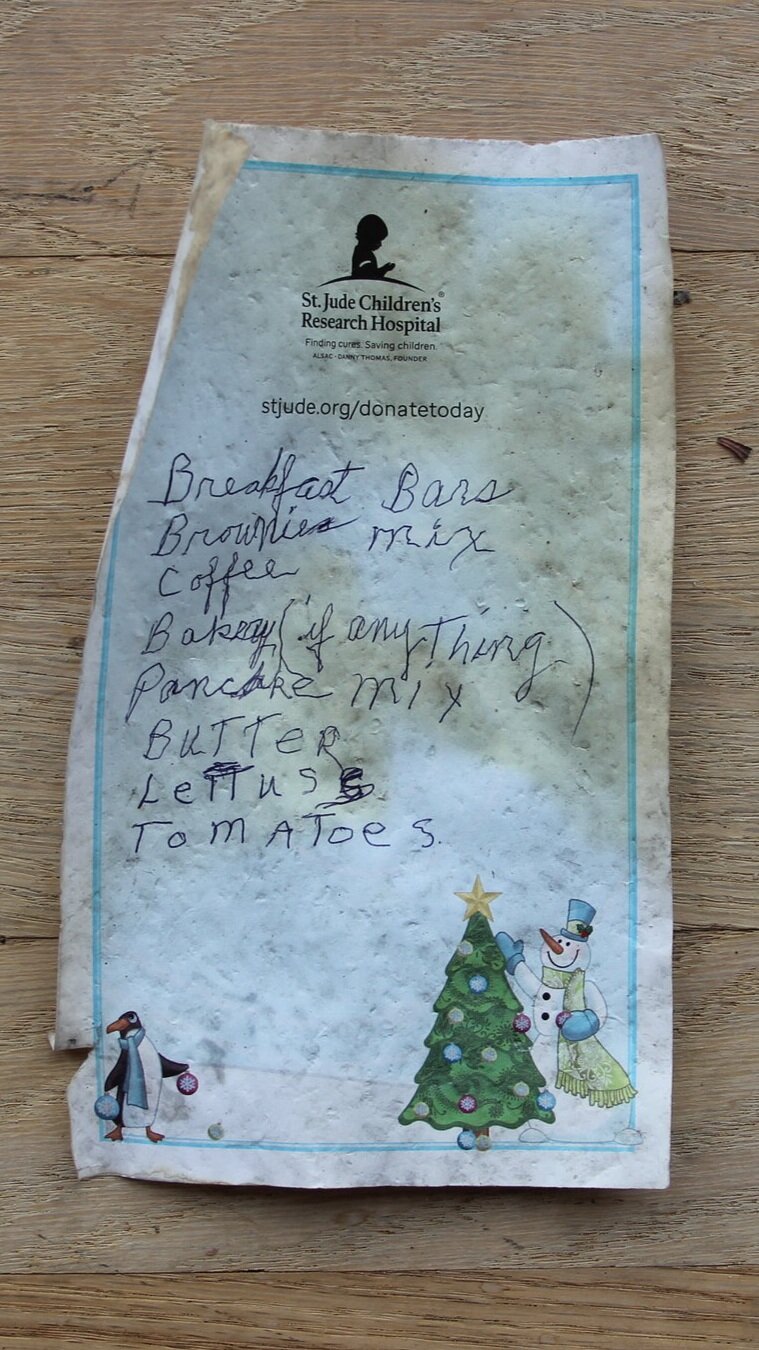 St. Jude Children's®
Research Hospital
Finding cures. Saving children.
ALSAC · DANNY THOMAS, FOUNDER
stjude.org/donatetoday
Breakfast Bars
Brownie mix
Coffee
Bakery (if any Thing)
Pancake mix
BUTTER
LeTTuss
TomAToes